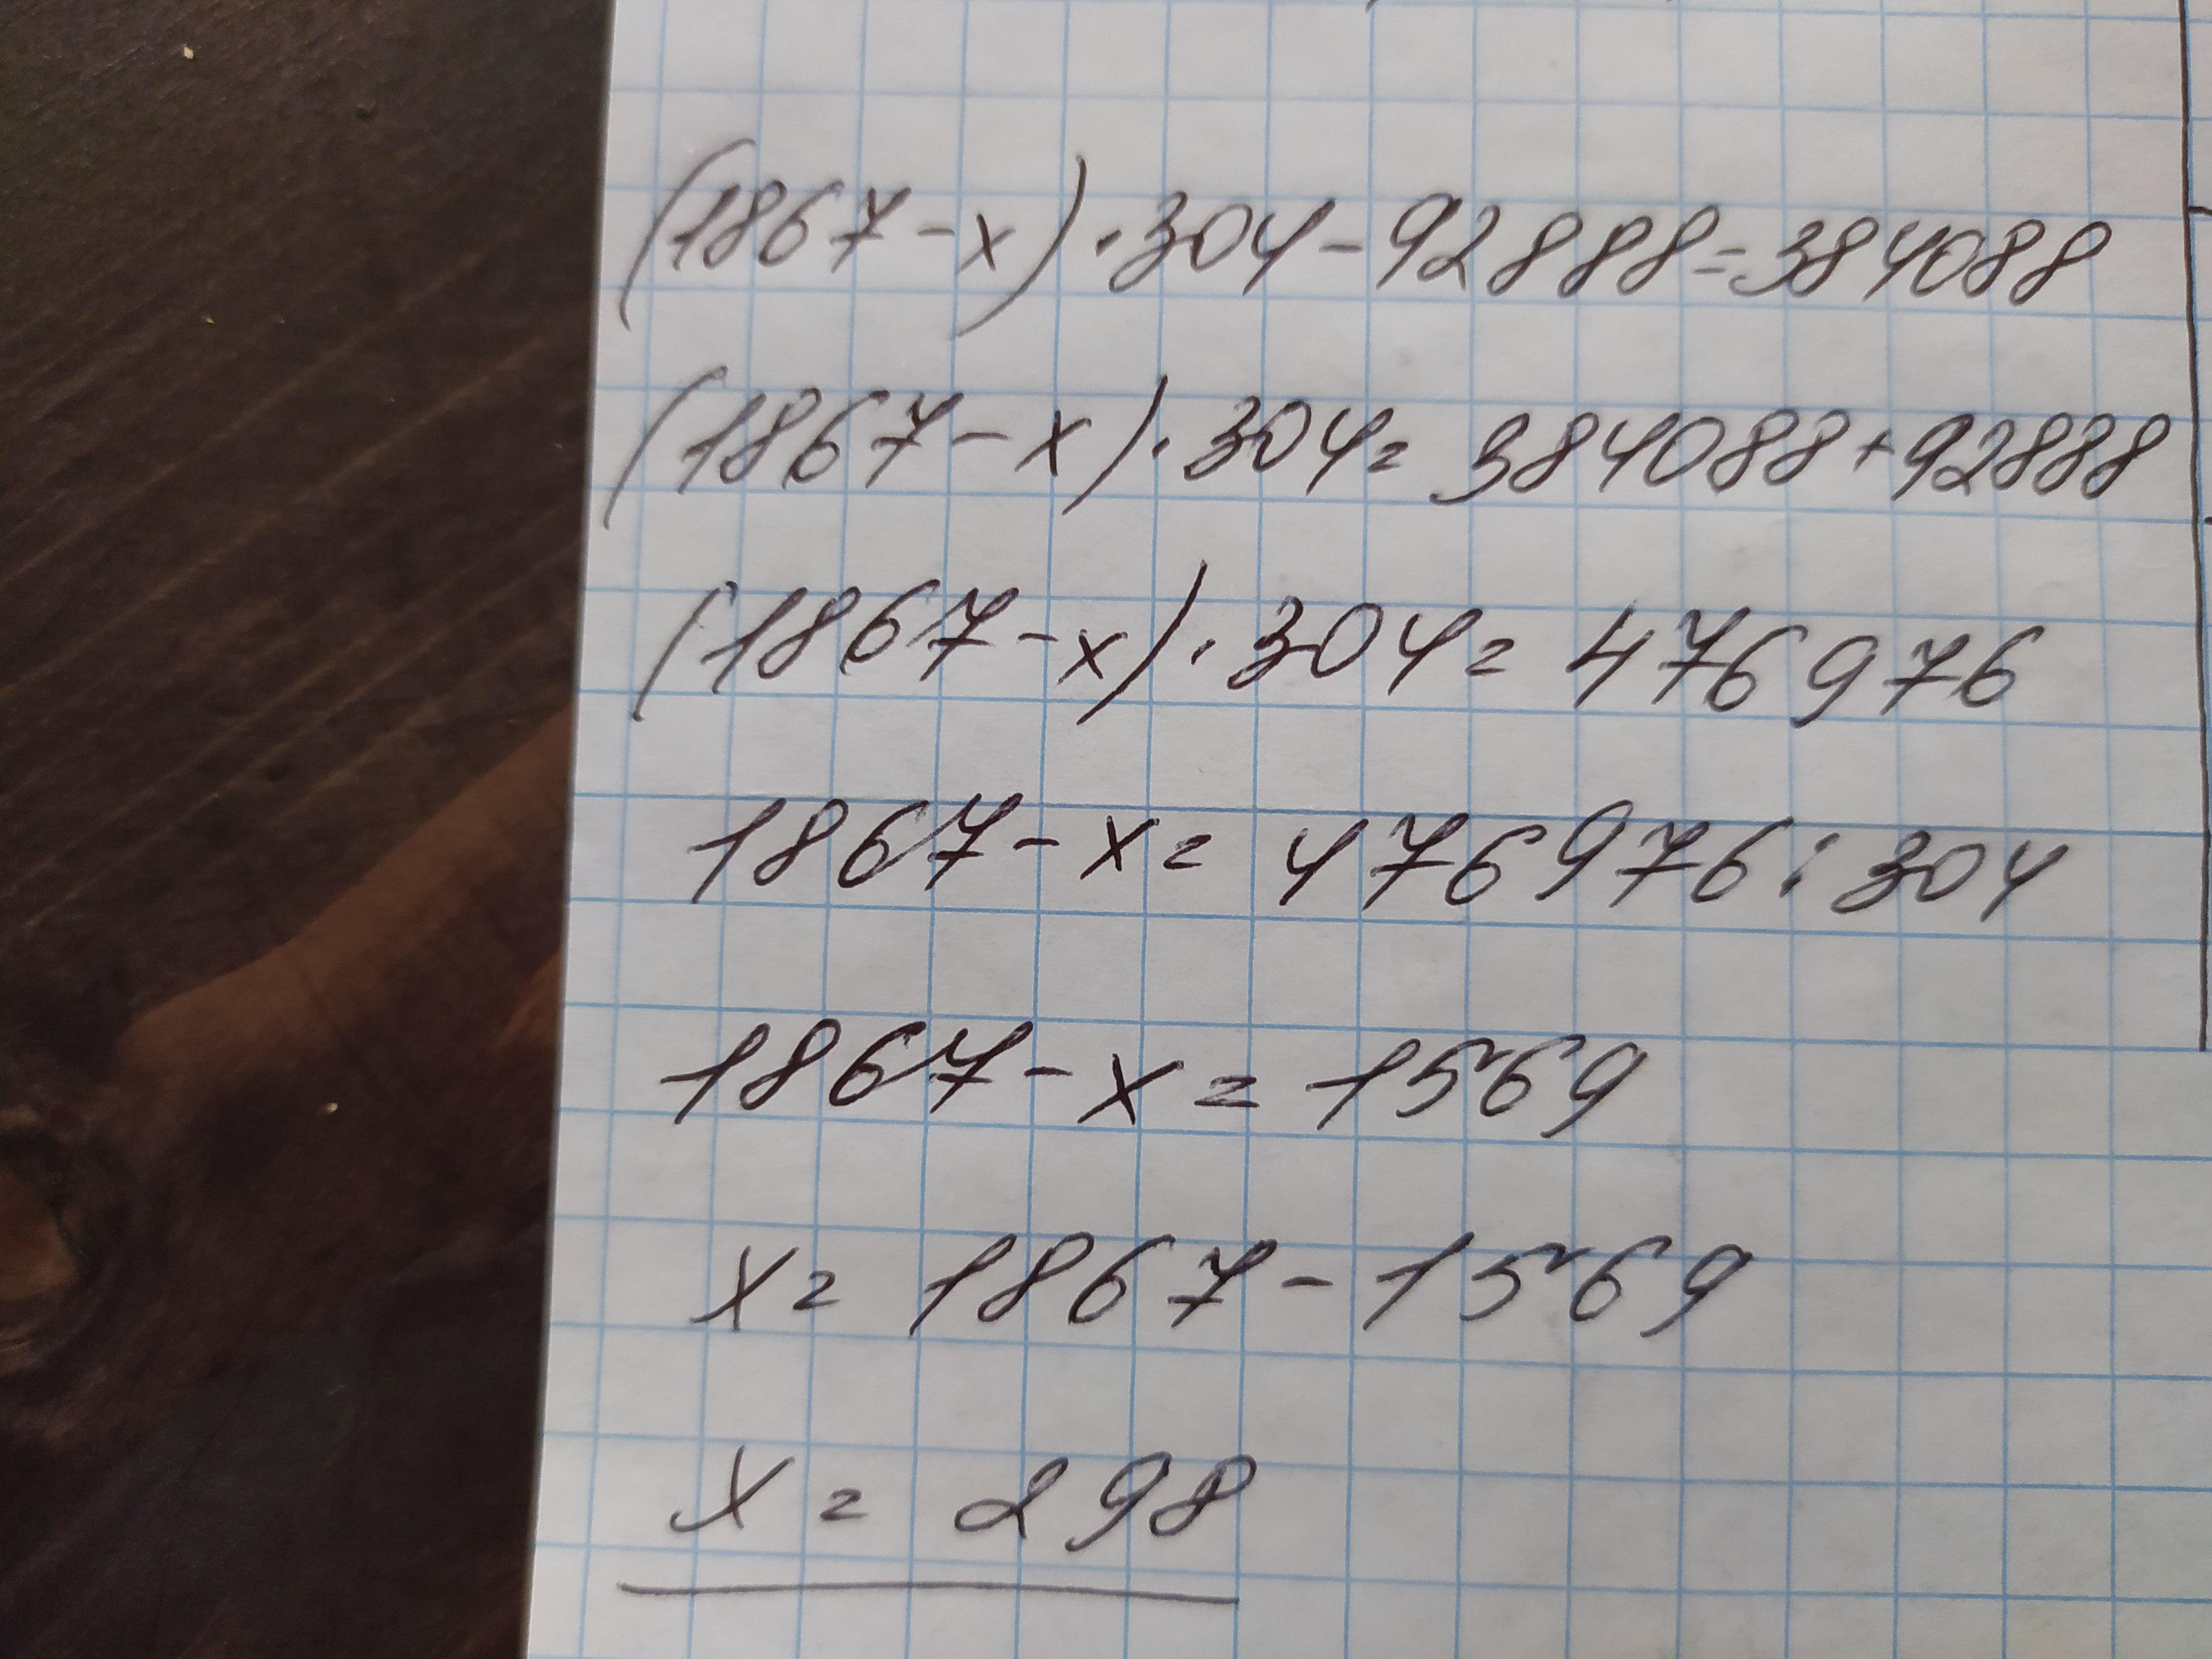 (1867-x)·304-92888=384088
(1867-x)·304=384088+92888
(1867-x)·304=476976
1867-x=476976:304
1867-x=1569
x=1867-1569
x=298